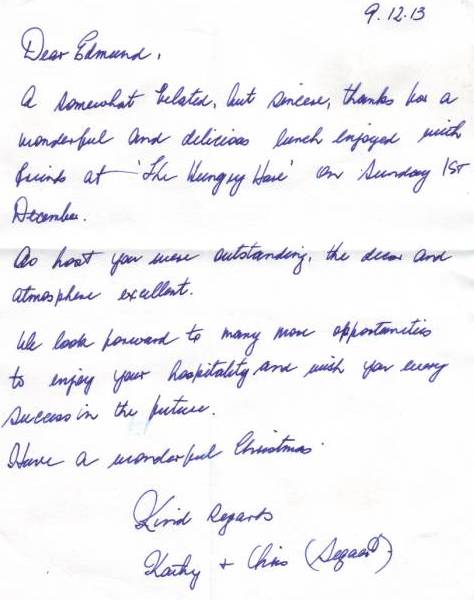 9.12.13
Dear Edmund,
A somewhat belated, but sincere, thanks for a
wonderful and delicious lunch enjoyed with
friends at 'The Hungry Hare' on Sunday 1st
December.
As host you were outstanding, the decor and
atmosphere excellent.
We look forward to many more opportunities
to enjoy your hospitality and wish you every
success in the future.
Have a wonderful Christmas.
Kind Regards
Kathy + Chris